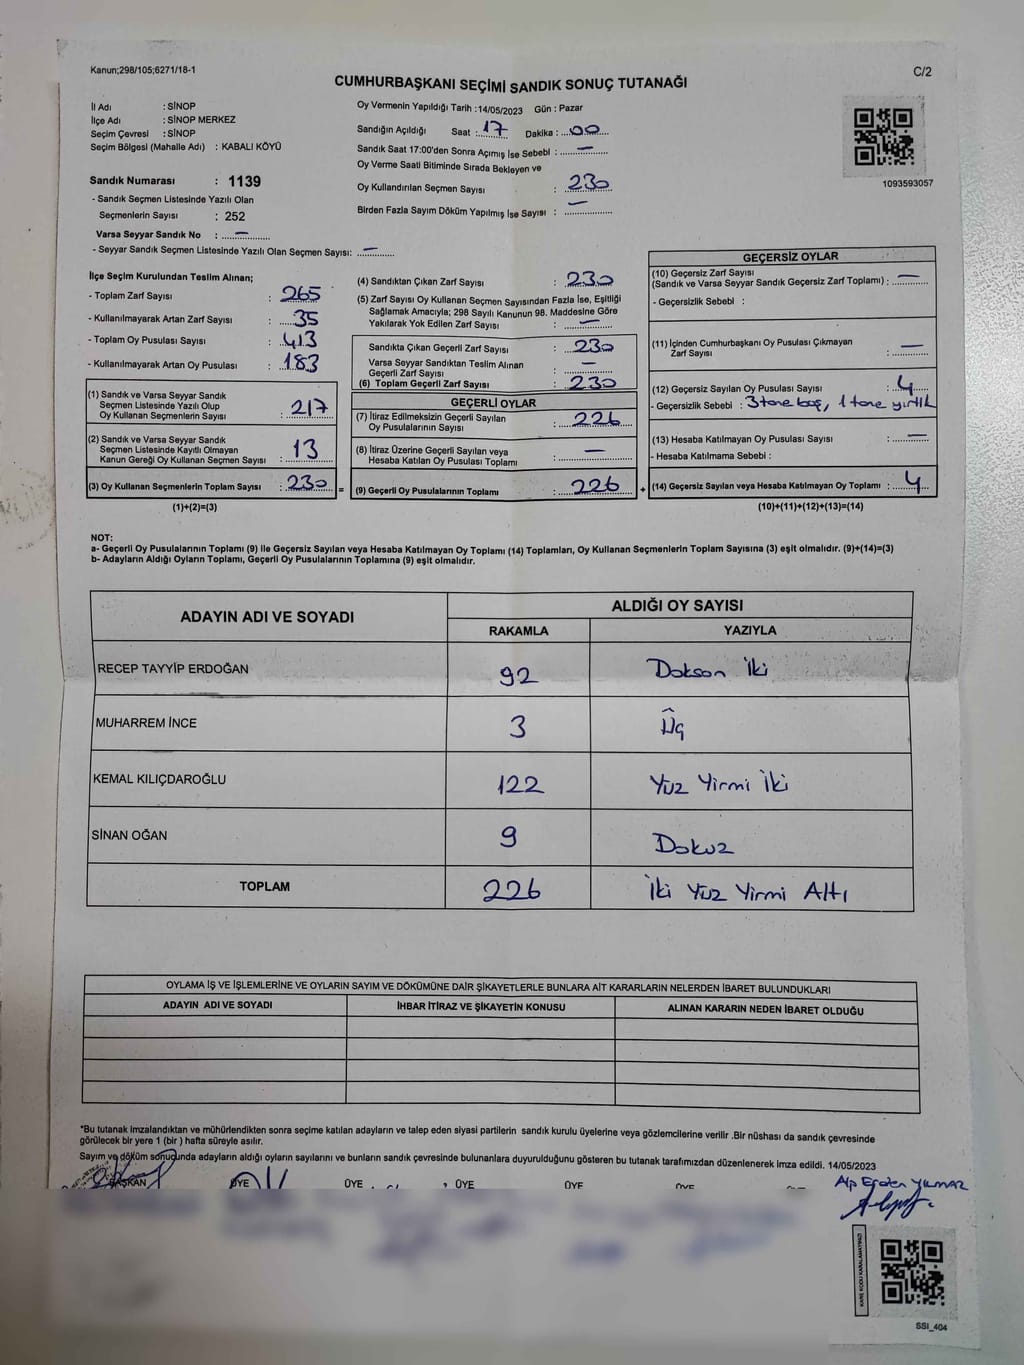 Kanun;298/105;6271/18-1
C/2
CUMHURBAŞKANI SEÇİMİ SANDIK SONUÇ TUTANAĞI
İl Adı : SİNOP
İlçe Adı : SİNOP MERKEZ
Seçim Çevresi : SİNOP
Seçim Bölgesi (Mahalle Adı) : KABALI KÖYÜ
Sandık Numarası : 1139
- Sandık Seçmen Listesinde Yazılı Olan
Seçmenlerin Sayısı : 252
Varsa Seyyar Sandık No : —
- Seyyar Sandık Seçmen Listesinde Yazılı Olan Seçmen Sayısı: —
Oy Vermenin Yapıldığı Tarih :14/05/2023 Gün : Pazar
Sandığın Açıldığı Saat : 17 Dakika : 00
Sandık Saat 17:00'den Sonra Açımış İse Sebebi : —
Oy Verme Saati Bitiminde Sırada Bekleyen ve
Oy Kullandırılan Seçmen Sayısı : 230
Birden Fazla Sayım Döküm Yapılmış İse Sayısı : —
1093593057
İlçe Seçim Kurulundan Teslim Alınan;
- Toplam Zarf Sayısı : 265
- Kullanılmayarak Artan Zarf Sayısı : 35
- Toplam Oy Pusulası Sayısı : 413
- Kullanılmayarak Artan Oy Pusulası : 183
(1) Sandık ve Varsa Seyyar Sandık
Seçmen Listesinde Yazılı Olup
Oy Kullanan Seçmenlerin Sayısı : 217
(2) Sandık ve Varsa Seyyar Sandık
Seçmen Listesinde Kayıtlı Olmayan
Kanun Gereği Oy Kullanan Seçmen Sayısı : 13
(3) Oy Kullanan Seçmenlerin Toplam Sayısı : 230 =
(1)+(2)=(3)
(4) Sandıktan Çıkan Zarf Sayısı : 230
(5) Zarf Sayısı Oy Kullanan Seçmen Sayısından Fazla İse, Eşitliği
Sağlamak Amacıyla; 298 Sayılı Kanunun 98. Maddesine Göre
Yakılarak Yok Edilen Zarf Sayısı : —
Sandıkta Çıkan Geçerli Zarf Sayısı : 230
Varsa Seyyar Sandıktan Teslim Alınan
Geçerli Zarf Sayısı : —
(6) Toplam Geçerli Zarf Sayısı : 230
GEÇERLİ OYLAR
(7) İtiraz Edilmeksizin Geçerli Sayılan
Oy Pusulalarının Sayısı : 226
(8) İtiraz Üzerine Geçerli Sayılan veya
Hesaba Katılan Oy Pusulası Toplamı : —
(9) Geçerli Oy Pusulalarının Toplamı : 226 +
GEÇERSİZ OYLAR
(10) Geçersiz Zarf Sayısı
(Sandık ve Varsa Seyyar Sandık Geçersiz Zarf Toplamı) : —
- Geçersizlik Sebebi :
(11) İçinden Cumhurbaşkanı Oy Pusulası Çıkmayan
Zarf Sayısı : —
(12) Geçersiz Sayılan Oy Pusulası Sayısı : 4
- Geçersizlik Sebebi : 3 tane boş, 1 tane yırtık
(13) Hesaba Katılmayan Oy Pusulası Sayısı : —
- Hesaba Katılmama Sebebi :
(14) Geçersiz Sayılan veya Hesaba Katılmayan Oy Toplamı : 4
(10)+(11)+(12)+(13)=(14)
NOT:
a- Geçerli Oy Pusulalarının Toplamı (9) ile Geçersiz Sayılan veya Hesaba Katılmayan Oy Toplamı (14) Toplamları, Oy Kullanan Seçmenlerin Toplam Sayısına (3) eşit olmalıdır. (9)+(14)=(3)
b- Adayların Aldığı Oyların Toplamı, Geçerli Oy Pusulalarının Toplamına (9) eşit olmalıdır.
ADAYIN ADI VE SOYADI ALDIĞI OY SAYISI
RAKAMLA YAZIYLA
RECEP TAYYİP ERDOĞAN 92 Doksan İki
MUHARREM İNCE 3 Üç
KEMAL KILIÇDAROĞLU 122 Yüz Yirmi İki
SİNAN OĞAN 9 Dokuz
TOPLAM 226 İki Yüz Yirmi Altı
OYLAMA İŞ VE İŞLEMLERİNE VE OYLARIN SAYIM VE DÖKÜMÜNE DAİR ŞİKAYETLERLE BUNLARA AİT KARARLARIN NELERDEN İBARET BULUNDUKLARI
ADAYIN ADI VE SOYADI İHBAR İTİRAZ VE ŞİKAYETİN KONUSU ALINAN KARARIN NEDEN İBARET OLDUĞU
*Bu tutanak imzalandıktan ve mühürlendikten sonra seçime katılan adayların ve talep eden siyasi partilerin sandık kurulu üyelerine veya gözlemcilerine verilir .Bir nüshası da sandık çevresinde
görülecek bir yere 1 (bir ) hafta süreyle asılır.
Sayım ve döküm sonucunda adayların aldığı oyların sayılarını ve bunların sandık çevresinde bulunanlara duyurulduğunu gösteren bu tutanak tarafımızdan düzenlenerek imza edildi. 14/05/2023
BAŞKAN ÜYE ÜYE ÜYE ÜYE ÜYE
Alp Erden YILMAZ
KARE KODU KARALAMAYINIZ!
SSI_404